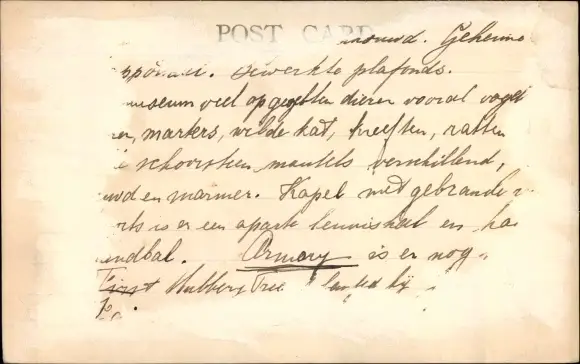 POST CARD
Geheime
Gewerkte plafonds.
museum veel opgezetten dieren vooral vogel
markers, wilde kat, kreeften, ratten
schoorsteen mantels verschillend,
en marmer. Kapel met gebrande
is er een aparte tennishal en ha
ndbal. Armory is er nog
First Rubber Tree planted by